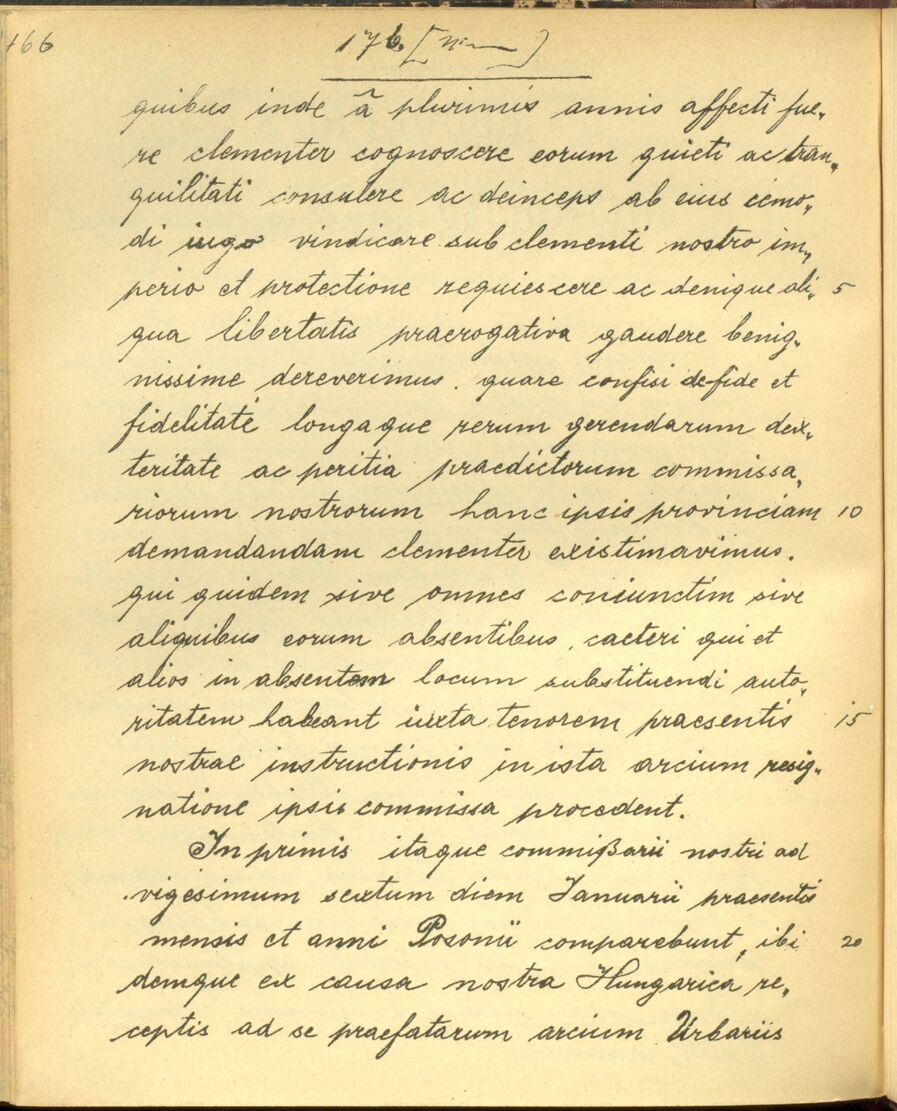 166
176.
quibus inde ã plurimis annis affecti fue„
re clementer cognoscere eorum quieti ac tran„
quilitati consulere ac deinceps ab eius cimo„
di iugo vindicare sub clementi nostro im„
perio et protectione requiescere ac denique ali„ 5
qua libertatis praerogativa gaudere benig„
nissime dereverimus. quare confisi de fide et
fidelitate longaque rerum gerendarum dex„
teritate ac peritia praedictorum commissa„
riorum nostrorum hanc ipsis provinciam 10
demandandam clementer existimavimus.
qui quidem sive omnes coniunctim sive
aliquibus eorum absentibus, caeteri qui et
alios in absentem locum substituendi auto„
ritatem habeant iuxta tenorem praesentis 15
nostrae instructionis in ista arcium resig„
natione ipsis commissa procedent.
In primis itaque commißarii nostri ad
vigesimum sextum diem Ianuarii praesentis
mensis et anni Posonii comparebunt, ibi 20
demque ex causa nostra Hungarica re„
ceptis ad se praefatarum arcium Urbariis